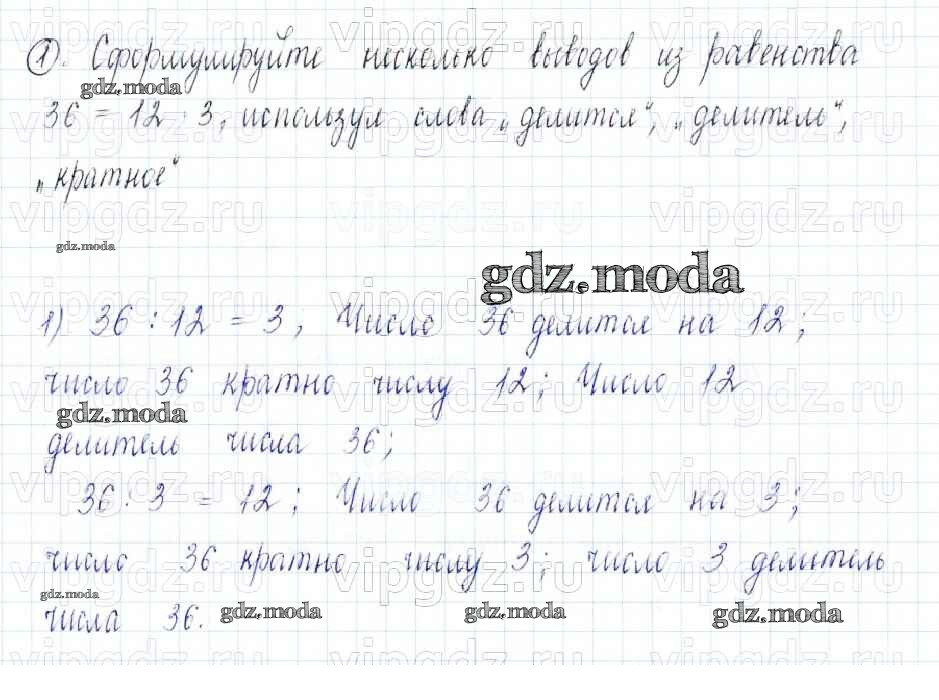 vipgdz.ru vipgdz.ru vipgdz.ru
1. Сформулируйте несколько выводов из равенства
gdz.moda
36 = 12 · 3, используя слова „делится“, „делитель“,
vipgdz.ru vipgdz.ru vipgdz.ru
„кратное“
vipgdz.ru vipgdz.ru vipgdz.ru
gdz.moda
gdz.moda
vipgdz.ru vipgdz.ru vipgdz.ru
1) 36 : 12 = 3; Число 36 делится на 12;
число 36 кратно числу 12; Число 12
vipgdz.ru vipgdz.ru vipgdz.ru
gdz.moda
делитель числа 36;
vipgdz.ru vipgdz.ru vipgdz.ru
36 : 3 = 12; Число 36 делится на 3;
число 36 кратно числу 3; число 3 делитель
vipgdz.ru vipgdz.ru vipgdz.ru
gdz.moda
числа 36.
gdz.moda gdz.moda gdz.moda
vipgdz.ru vipgdz.ru vipgdz.ru